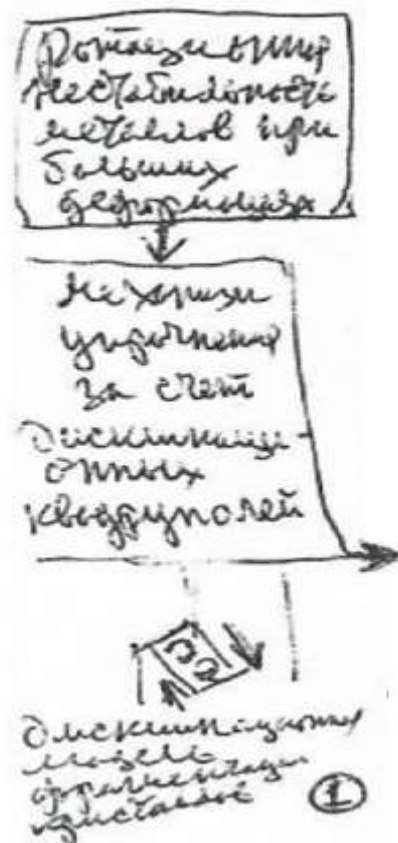 Ротационная
нестабильность
металлов при
больших
деформациях
Механизм
упрочнения
за счет
Дисклинаци-
онных
квадруполей
Дисклинационная
модель
фрагментации
кристаллов
1